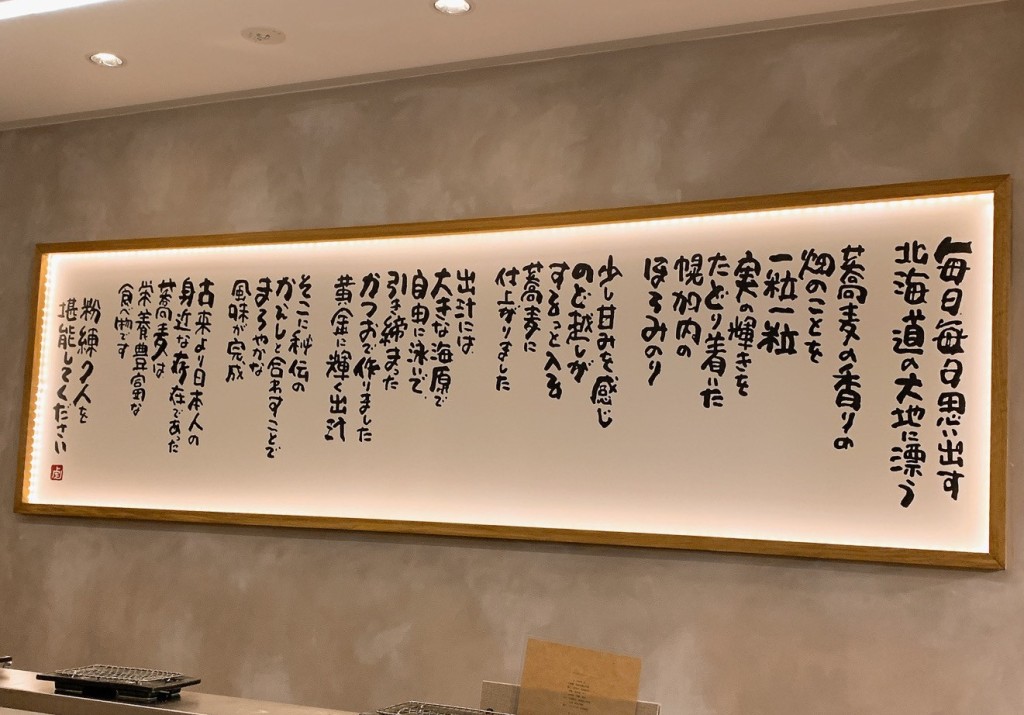 毎日毎日思い出す
北海道の大地に漂う
蕎麦の香りの
畑のことを
一粒一粒
実の輝きを
たどり着いた
幌加内の
ほろみのり
少し甘みを感じ
のど越しが
するっと入る
蕎麦に
仕上がりました
出汁には
大きな海原で
自由に泳いで、
引き締まった
かつおで作りました
黄金に輝く出汁
そこに秘伝の
かえしと合わすことで
まろやかな
風味が完成
古来より日本人の
身近な存在であった
蕎麦は
栄養豊富な
食べ物です
粉練夕人を
堪能してください